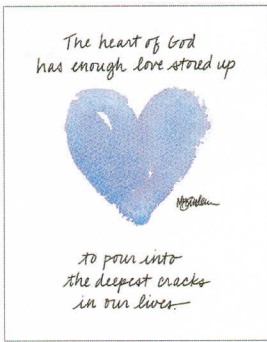 The heart of God
has enough love stored up
to pour into
the deepest cracks
in our lives.